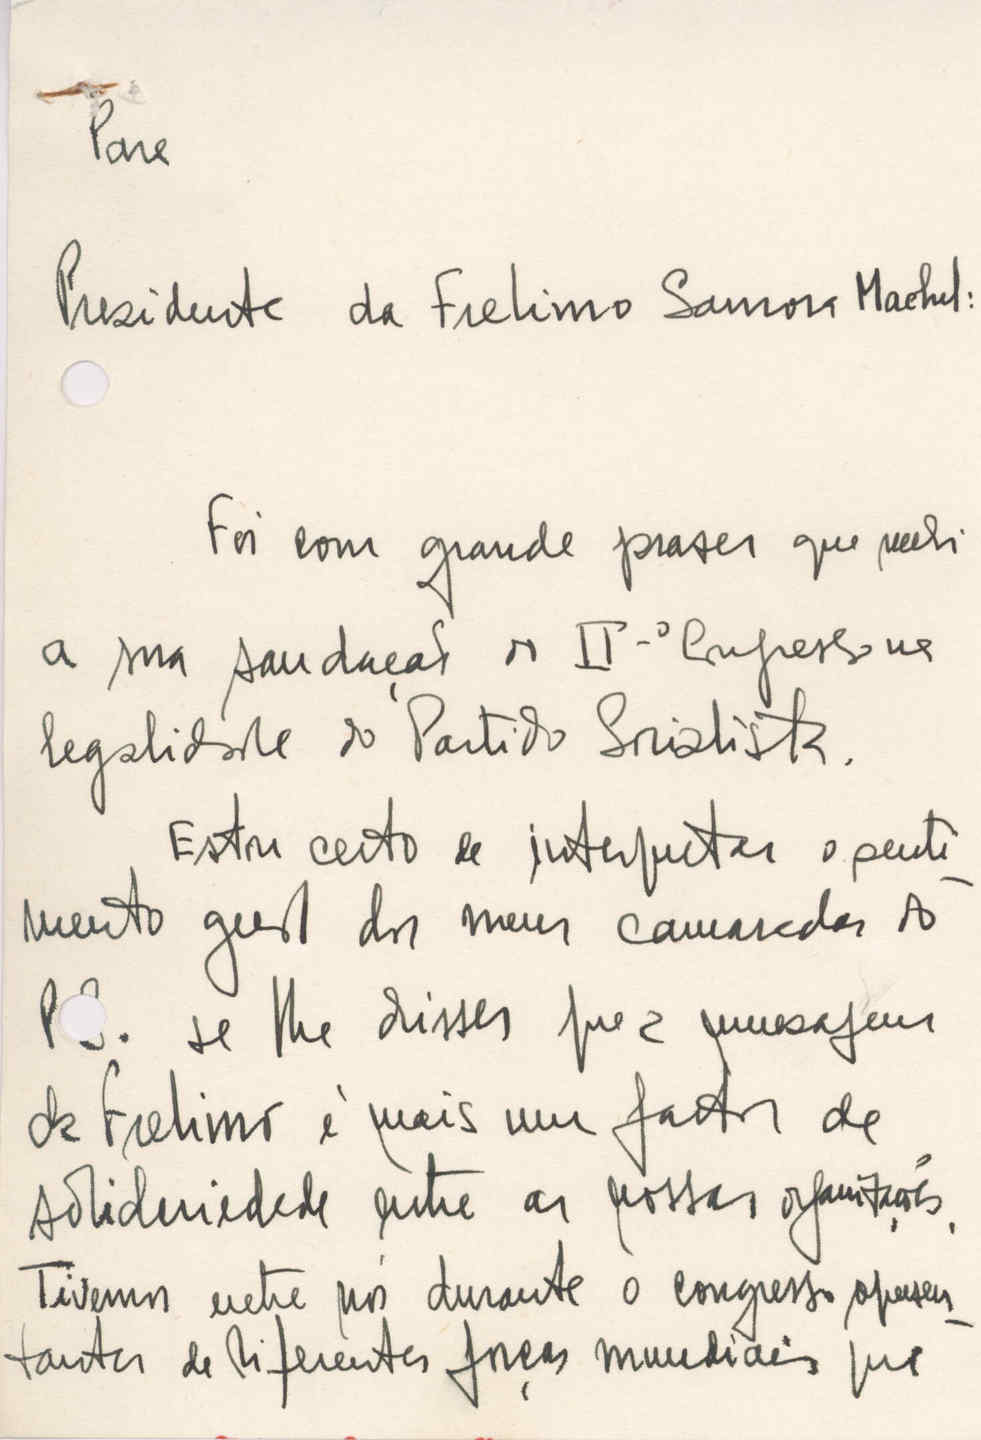 Para
Presidente da Frelimo Samora Machel:
Foi com grande praser que recebi
a sua saudação ao IIº Congresso na
legalidade do Partido Socialista.
Estou certo de interpretar o senti-
mento geral dos meus camaradas do
P.S. se lhe disser que a mensagem
da Frelimo é mais um factor de
solideriedade entre as nossas organizações.
Tivemos entre nós durante o congresso
tantes de diferentes forças mundiais que